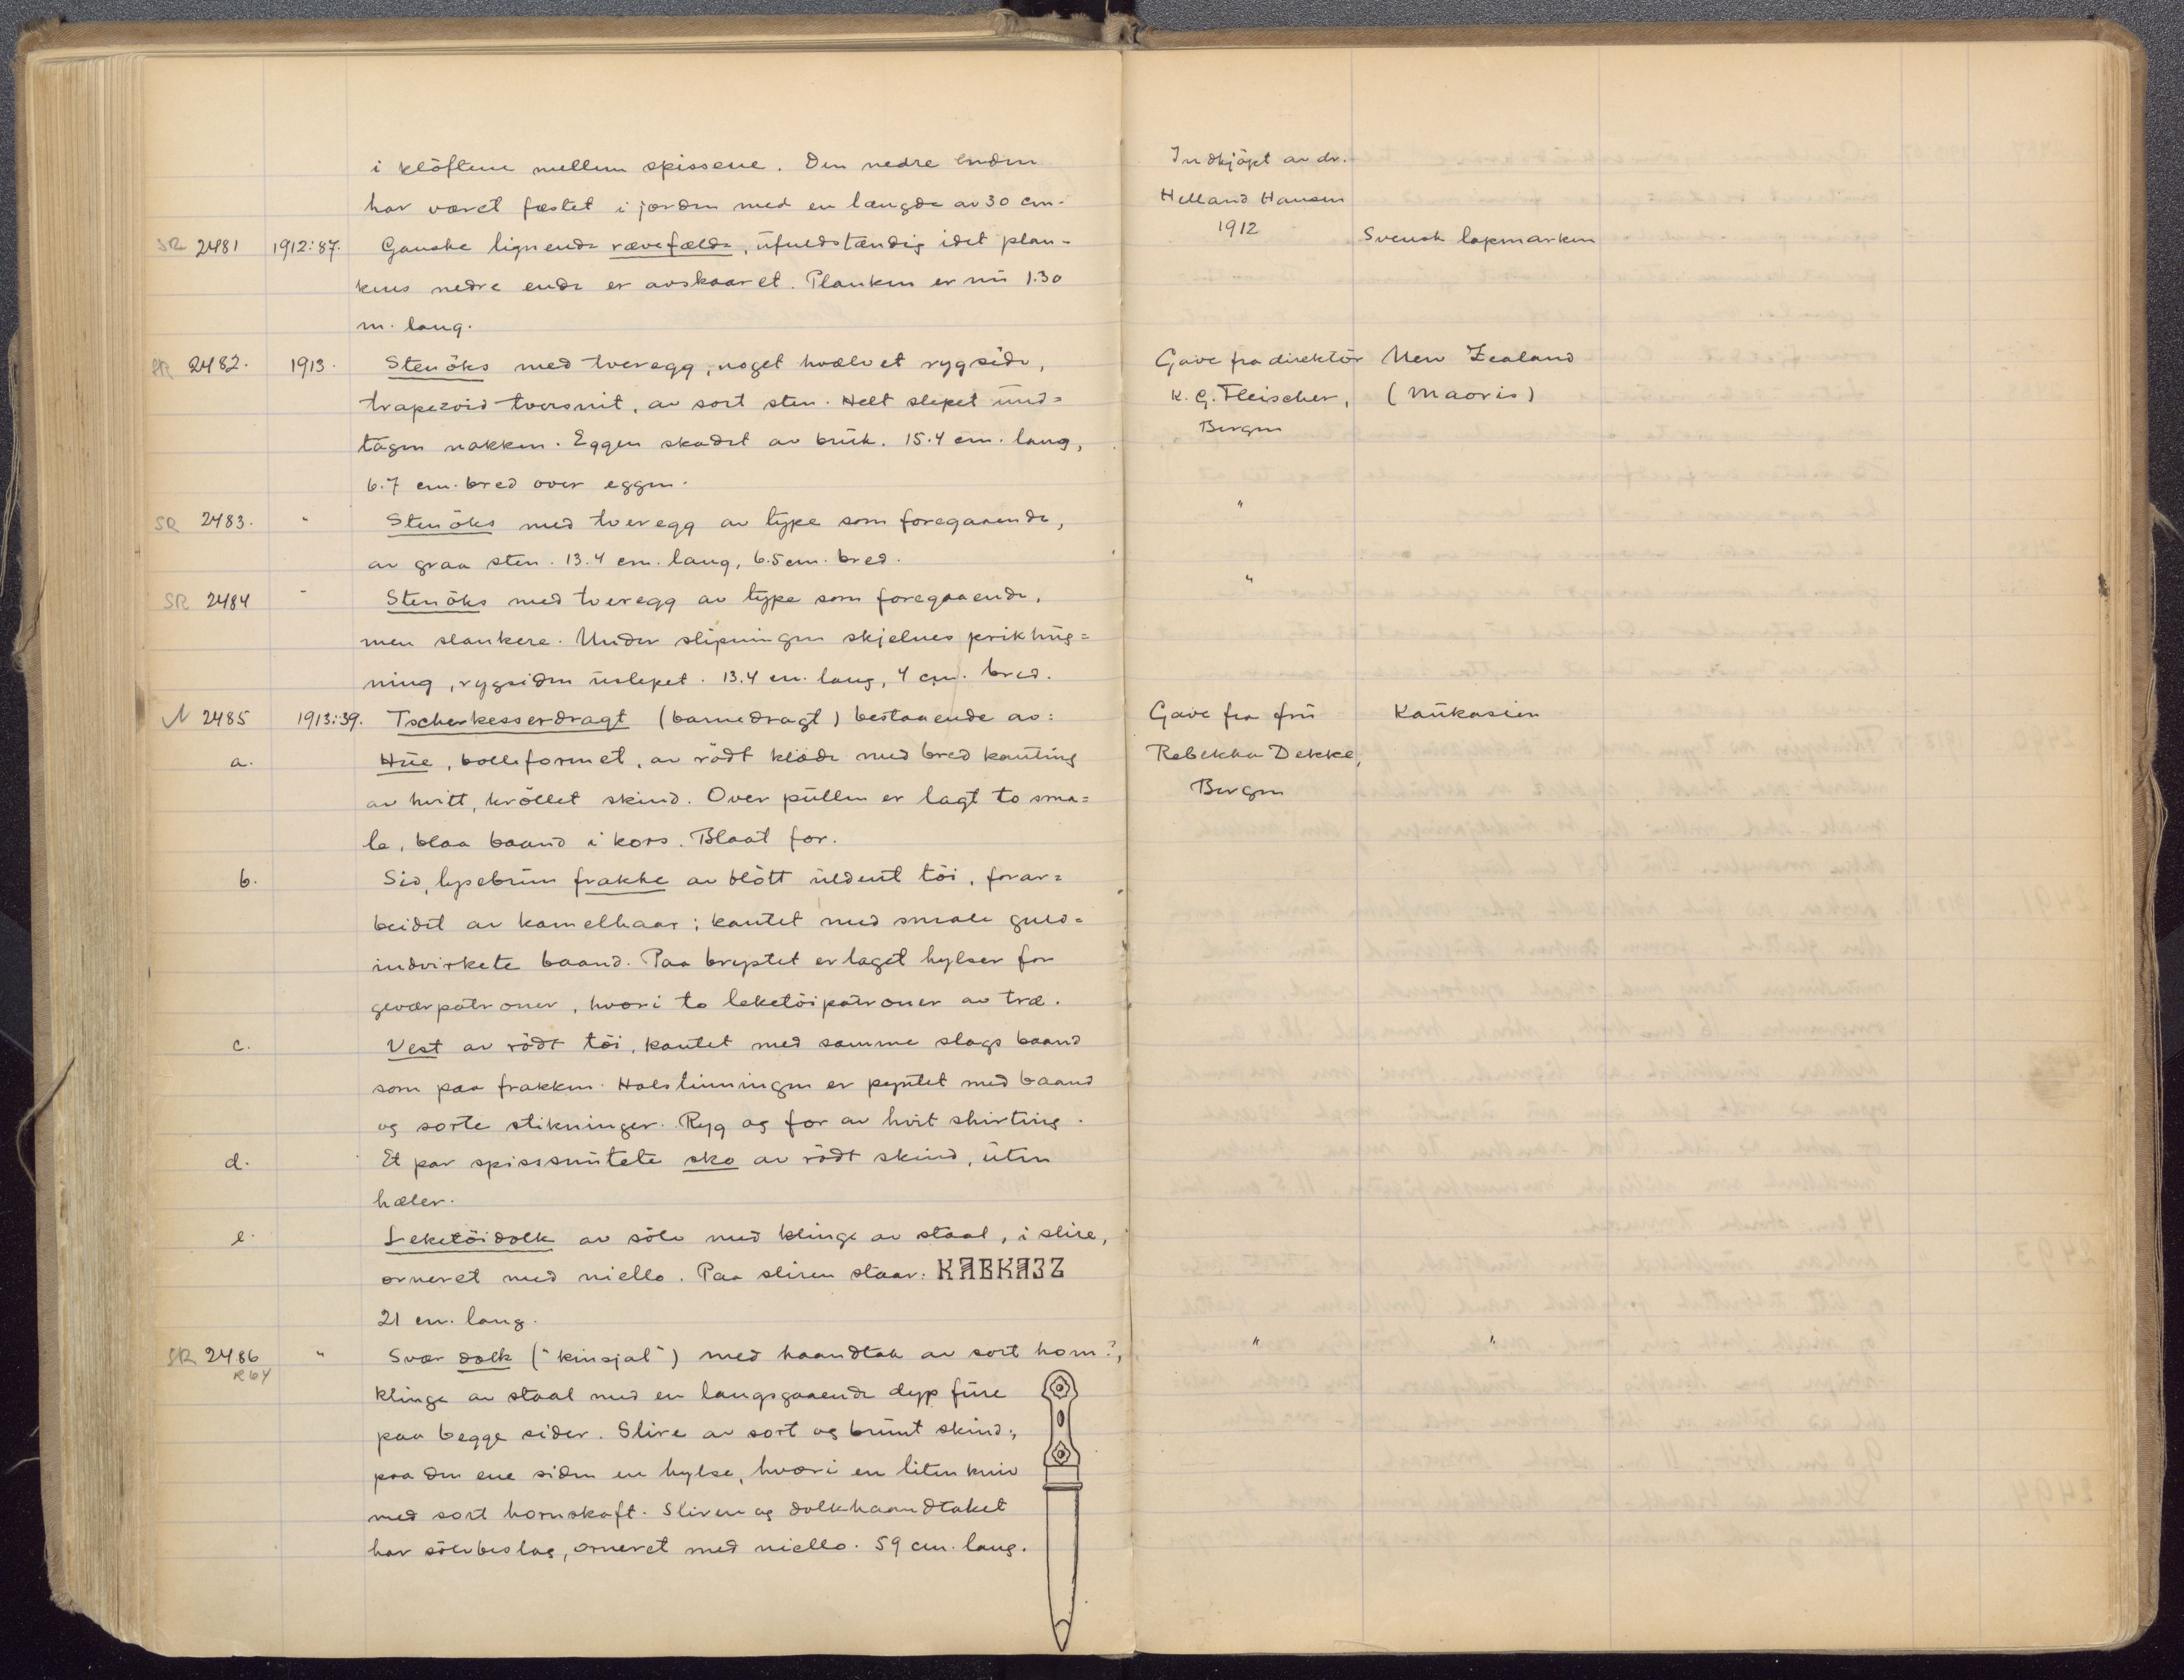 i klöftene mellem spissene. Den nedre enden
har været fæstet i jorden med en længde av 30 cm.
Indkjöpt av dr.
Helland Hansen
1912
SR 2481 1912:87. Ganske lignende rævefælde, ufuldstændig idet plan-
Svensk lapmarken
kens nedre ende er avskaaret. Planken er nu 1.30
m. lang.
SR 2482. 1913. Stenöks med tveregg, noget hvælvet rygside,
Gave fra direktör New Zealand
trapezoid tversnit, av sort sten. Helt slepet und=
K. G. Fleischer, (Maoris)
tagen nakken. Eggen skadet av bruk. 15.4 cm. lang,
Bergen
6.7 cm. bred over eggen.
SR 2483. " Stenöks med tveregg av type som foregaaende, "
av graa sten. 13.4 cm. lang, 6.5 cm. bred.
SR 2484 " Stenöks med tveregg av type som foregaaende, "
men slankere. Under slipningen skjelnes prikhug=
ning, rygsiden uslepet. 13.4 cm. lang, 4 cm. bred.
N 2485 1913:39. Tscherkesserdragt (barnedragt) bestaaende av:
Gave fra fru Kaukasien
a. Hue, bolleformet, av rödt klæde med bred kanting
Rebekka Dekke,
av hvitt, kröllet skind. Over pullen er lagt to sma=
Bergen
le, blaa baand i kors. Blaat for.
b. Sid, lysebrun frakke av blött uldent töi, forar=
beidet av kamelhaar; kantet med smale guld=
indvirkete baand. Paa brystet er laget hylser for
geværpatroner, hvori to leketöipatroner av træ.
c. Vest av rödt töi, kantet med samme slags baand
som paa frakken. Halslinningen er pyntet med baand
og sorte stikninger. Ryg og for av hvit shirting.
d. Et par spissnutete sko av rödt skind, uten
hæler.
e. Leketöidolk av sölv med klinge av staal, i slire,
orneret med niello. Paa sliren staar: КАВКАЗЪ
21 cm. lang.
SR 2486 " Svær dolk ("kinsjal") med haandtak av sort horn?, " "
R 64
klinge av staal med en langsgaaende dyp fure
paa begge sider. Slire av sort og brunt skind;
paa den ene siden en hylse, hvori en liten kniv
med sort hornskaft. Sliren og dolkhaandtaket
har sölvbeslag, orneret med niello. 59 cm. lang.